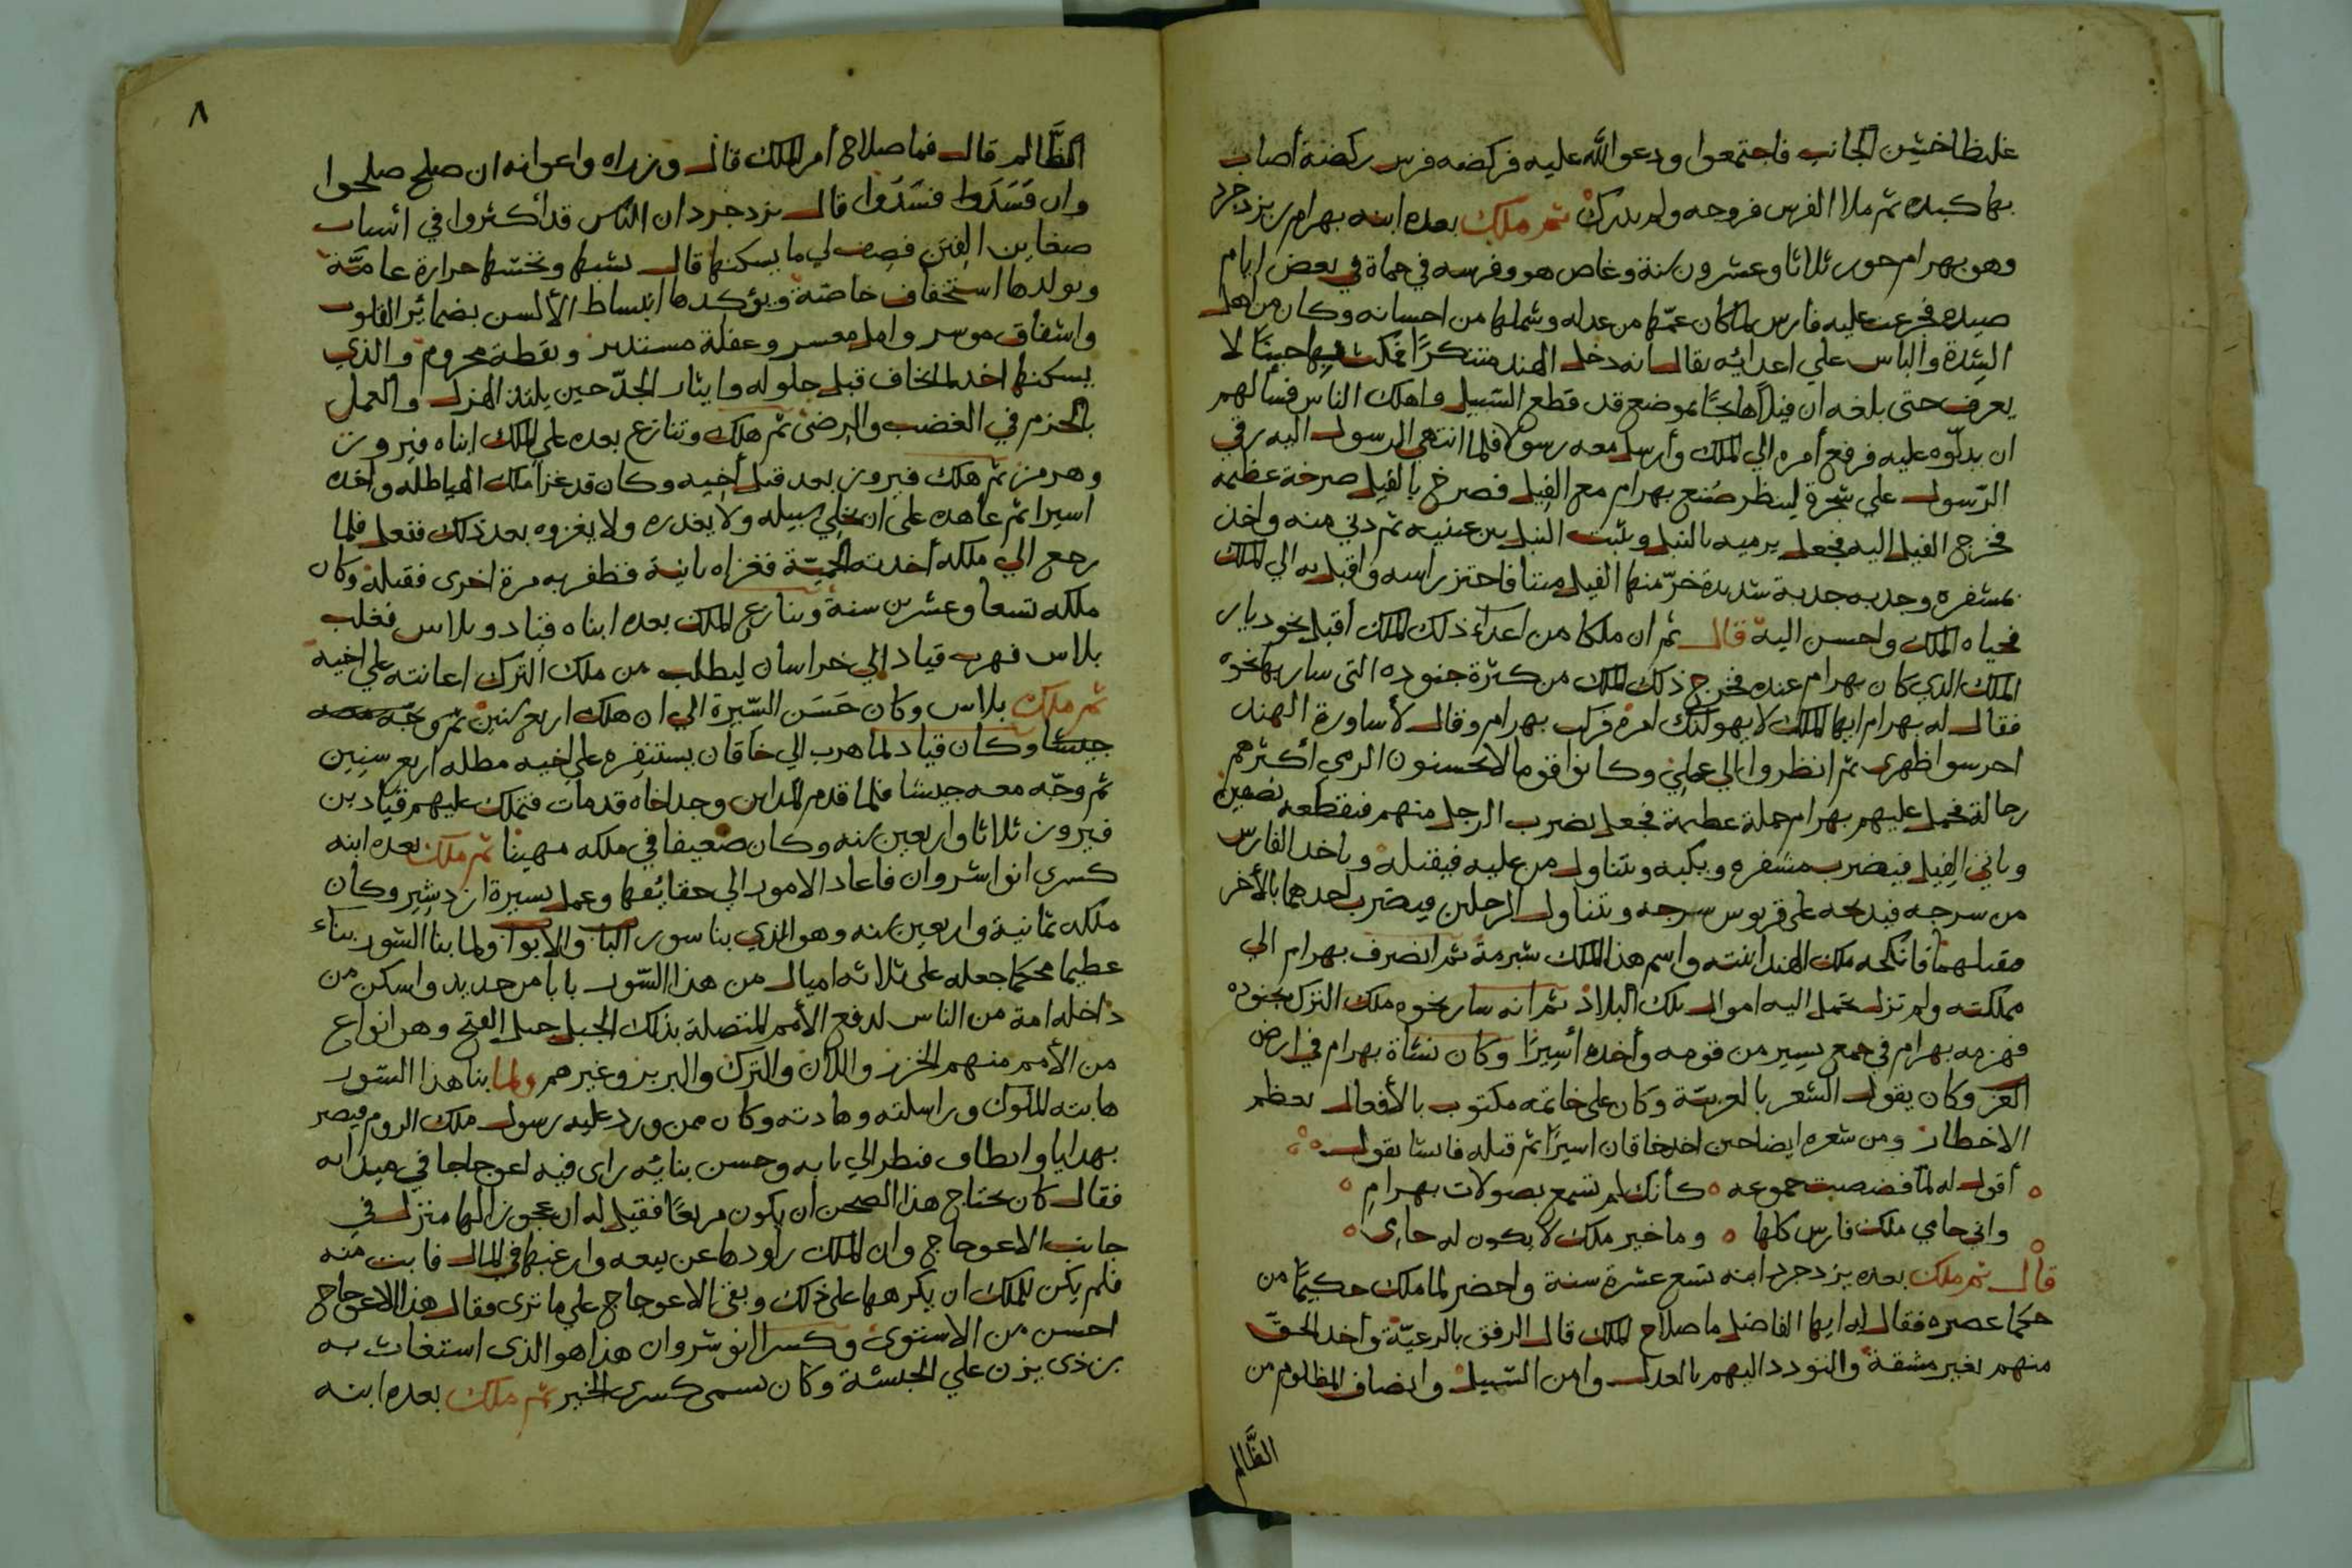 غليظا خشن الجانب فاجتمعوا ودعوا الله عليه فركضه فرس ركضة أصاب
بها كبده ثم ملا الفرس فروجه ولم يدرك ثم ملك بعده ابنه بهرام بن يزدجرد
وهو بهرام جور ثلاثا وعشرون سنة وغاص هو وفرسه في حماة في بعض ايام
صيده فجزعت عليه فارس لما كان عمّها من عدله وشملها من احسانه وكان من اهل
الشدة والباس علي اعدائه يقال انه دخل الهند متنكرًا فمكث فيها حينًا لا
يعرف حتى بلغه ان فيلاً هائجًا بموضع قد قطع السبيل واهلك الناس فسألهم
ان يدلّوه عليه فرفع أمره الي الملك وأرسل معه رسولا فلما انتهى الرسول اليه رقي
الرّسول علي شجرة لينظر صُنع بهرام مع الفيل فصرخ بالفيل صرخة عظيمة
فخرج الفيل اليه فجعل يرميه بالنبل ويثبت النبل بين عينيه ثم دني منه واخذ
بمشفره وجذبه جذبة شديدة خرّ منها الفيل ميتا فاحتز راسه واقبل به الي الملك
فحياه الملك واحسن اليه قال ثم ان ملكا من اعداء ذلك الملك أقبل نحو ديار
الملك الذي كان بهرام عنده فخرج ذلك الملك من كثرة جنوده التى سار بها نحوه
فقال له بهرام ايها الملك لا يهولنك امره فركب بهرام وقال لأساورة الهند
احرسوا ظهرى ثم انظروا الي عملي وكانوا قوما لا يحسنون الرمي أكثرهم
رجالة فحمل عليهم بهرام حملة عظيمة فجعل يضرب الرجل منهم فيقطعه نصفين
وياتي الفيل فيضرب مشفره ويكبه ويتناول من عليه فيقتله وياخذ الفارس
من سرجه فيذبحه على قربوس سرجه ويتناول الرجلين فيضرب احدهما بالأخر
فيقتلهما فانكحه ملك الهند ابنته واسم هذا الملك شبرمة ثم انصرف بهرام الي
مملكته ولم تزل تحمل اليه اموال تلك البلاد ثم انه سار نحوه ملك الترك بجنوده
فهزمه بهرام في جمع يسير من قومه وأخذه أسيرًا وكان نشاة بهرام في ارض
العز وكان يقول الشعر بالعربيّة وكان على خاتمه مكتوب بالأفعال تعظم
الاخطار ومن شعره ايضا حين اخذ خاقان اسيرًا ثم قتله فانشا يقول
أقول له لما فضضت جموعه كأنك لم تسمع بصولات بهرامِ
واني حامي ملك فارس كلها وما خير ملك لا يكون له حامى
قال ثم ملك بعده يزدجرد ابنه تسع عشرة سنة واحضر لما ملك حكيمًا من
حكما عصره فقال له ايها الفاضل ما صلاح الملك قال الرفق بالرعيّة وأخذ الحق
منهم بغير مشقة والتودد اليهم بالعدل وامن السّبيل وانصاف المظلوم من
الظَّالم
٨
الظَّالم قال فما صلاح أمر الملك قال وزراه واعوانه ان صلح صلحوا
وان فَسَدَوا فسَدَوا قال يزدجرد ان الناس قد أكثروا في اسباب
صغاين الفِتَن فصف لي ما يسكنها قال يشبها ونخشها حرارة عاميَّة
ويولدها استخفاف خاصّة ويؤكدها انبساط الألسن بضمائر القلوب
واشفاق موسر وامل معسر وغفلة مستدبر ويقظة محروم والذي
يسكنها اخذ لما يخاف قبل حلوله وايثار الجدّ حين يلتذ الهزل والعمل
بالحزم في الغضب والرضى ثم هلك وتنازع بعده على الملك ابناه فيروز
وهرمز ثم هلك فيروز بعد قتل أخيه وكان قد غزا ملك الهياطله واخذه
اسيرا ثم عاهده على ان يخلي سبيله ولا يغدره ولا يغزوه بعد ذلك ففعل فلما
رجع الي ملكه أخذته الحميّة فغزاه ثانية فظفر به مرة اخرى فقتله وكان
ملكه تسعا وعشرين سنة وتنازع الملك بعده ابناه قباد وبلاس فغلب
بلاس فهرب قباد الي خراسان ليطلب من ملك الترك اعانته علي اخيه
ثم ملك بلاس وكان حَسَن السّيرة الي ان هلك اربع سنين ثم وجّه معه
جيشا وكان قباد لما هرب الي خاقان يستنفره علي اخيه مطله اربع سنِين
ثم وجّه معه جيشا فلما قدم المداين وجد اخاه قد مات فتملك عليهم قباد بن
فيروز ثلاثا واربعين سنه وكان ضعيفا في ملكه مهينا ثم ملك بعده ابنه
كسرى انوا شروان فاعاد الامور الي حقائقها وعمل بسيرة ازدشير وكان
ملكه ثمانية واربعين سنه وهو الذي بنا سور الباب والابواب ولما بنا السّور بناء
عظيما محكما جعله على ثلاثه اميال من هذا السّور بابا من حديد واسكن من
داخله امة من الناس لدفع الأمم المتصلة بذلك الجبل جبل الفتح وهم انواع
من الأمم منهم الخزر واللان والترك والبربز وغيرهم ولما بنا هذا السّور
هابته الملوك وراسلته وهادته وكان ممن ورد عليه رسول ملك الروم قيصر
بهدايا والطاف فنظر الي بابه وحسن بنائه راى فيه اعوجاجا في ميدانه
فقال كان يحتاج هذا الصحن ان يكون مربعًا فقيل له ان عجوز الها منزل في
جانب الاعوجاج وان الملك راودها عن بيعه وارغبها في المال فابت منه
فلم يكن للملك ان يكرهها على ذلك وبقى الاعوجاج علي ما ترى فقال هذا الاعوجاج
احسن من الاستوى وكسرا انوشروان هذا هو الذى استغاث به
بن ذى يزن علي الحبشة وكان يسمى كسرى الخير ثم ملك بعده ابنه